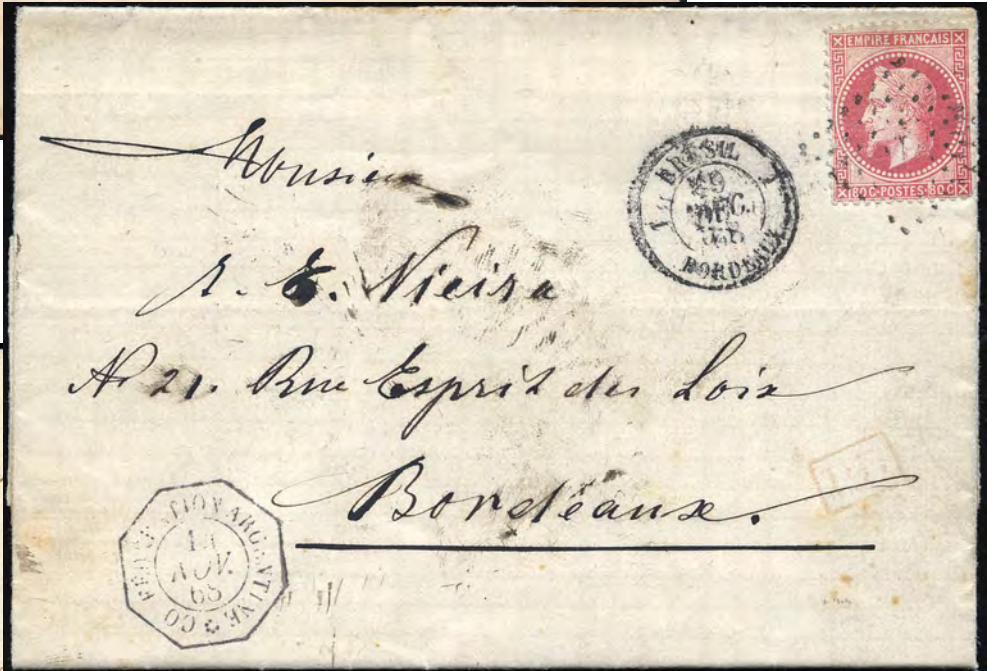 EMPIRE FRANÇAIS
80 C · POSTES · 80 C
BRESIL
29
DEC.
BORDEAUX
Monsieur
E. Vieira
No 21. Rue Esprit des Loix
Bordeaux.
CONFEDERATION ARGENTINE
NOV.
68